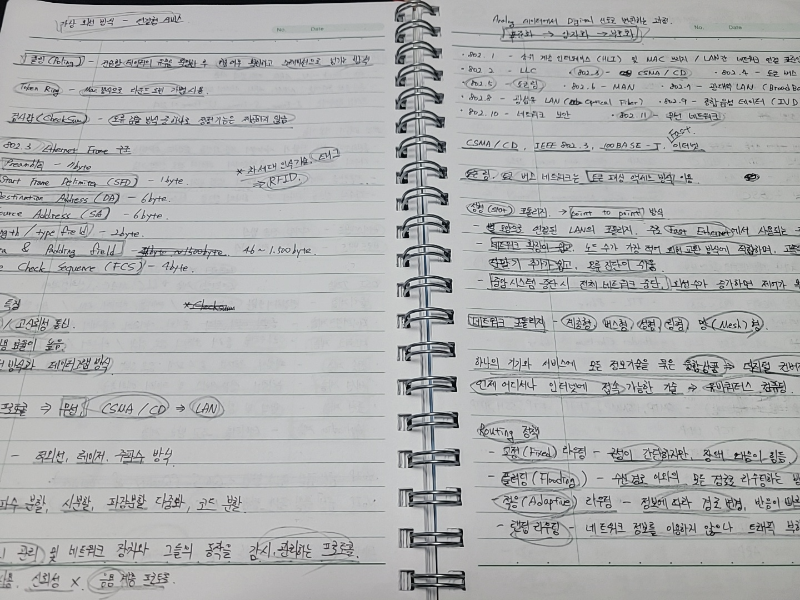 가상 회선 방식 - 연결형 서비스
폴링(Poling) -
Token Ring -
체크섬(CheckSum) - 오류 검출 방식
802.3 / Ethernet Frame 구조
Preamble - 7byte
* 차세대 인식기술, 태그
⇒ RFID.
Start Frame Delimiter (SFD) - 1byte.
Destination Address (DA) - 6byte.
Source Address (SA) - 6byte.
Length / type field - 2byte.
& Padding field 46 ~ 1.500byte.
Check Sequence (FCS) - 4byte.
특징
고신뢰성 통신.
효율이 높음.
방식과 데이터그램 방식
프로토콜 ⇒ 무선, CSMA/CD → LAN
- 적외선, 레이저, 주파수 방식.
주파수 분할, 시분할, 파장분할 다중화, 코드 분할.
관리 및 네트워크 장치와 그들의 동작을 감시, 관리하는 프로토콜.
신뢰성 × 응용 계층 프로토콜.
Analog 데이터에서 Digital 신호로 변환하는 과정.
표준화 → 양자화 → 부호화
· 802.1 - 상위 계층 인터페이스 (HLI) 및 MAC 브리지 / LAN간
· 802.2 - LLC · 802.3 - CSMA/CD · 802.4 - 토큰 버스
· 802.5 - 토큰링 · 802.6 - MAN · 802.7 - 광대역 LAN
· 802.8 - 광섬유 LAN (Optical Fiber) · 802.9 - 종합 음성 데이터
· 802.10 - 네트워크 보안 · 802.11 - 무선 네트워크
Fast
CSMA/CD, IEEE 802.3, 100 BASE - T, 이더넷
토큰링, 토큰 버스 네트워크는 토큰 패싱 액세스 방식 이용
성형(star) 토폴리지. → point to point 방식
연결된 LAN의 토폴리지, 주로 Fast Ethernet에서 사용되는
네트워크 확장이 쉽고, 노드 수가 가장 적어 회선 교환 방식에 적합하며,
추가가 쉽고, 오류 진단이 쉬움
- 중앙 시스템 중단시 전체 네트워크 중단, 회선수가 증가하면 제어가
네트워크 토폴리지 - 계층형, 버스형, 성형, 링형, 망(Mesh)형.
하나의 기기와 서비스에 모든 정보기술을 묶은 융합상품 ⇒ 디지털
언제 어디서나 인터넷에 접속 가능한 기술 ⇒ 유비쿼터스 컴퓨팅.
Routing 정책
- 고정(Fixed) 라우팅 - 구성이 간단하지만, 장애 대응이 힘듦
- 플러딩(Flooding) - 수신 경로 이외의 모든 경로로 라우팅하는
- 적응(Adaptive) 라우팅 - 정보에 따라 경로 변경, 반응이
- 랜덤 라우팅 - 네트워크 정보를 이용하지 않으나 트래픽